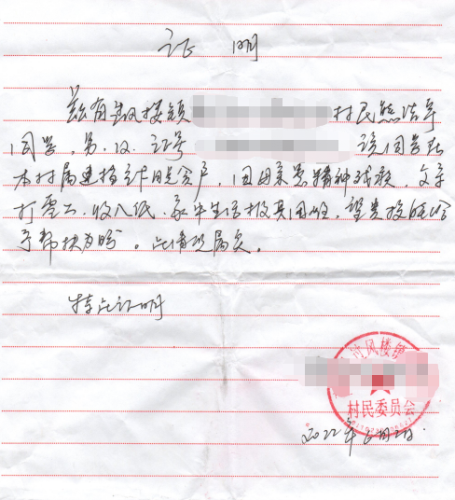 证 明
兹有 楼镇 村民熊浩宇
同学，男，汉，证号 该同学在
本村属建档立卡脱贫户，因母亲患精神残疾，父亲
打零工，收入低，家中生活极其困难，望贵校能给
予帮扶为盼。此情况属实。
特此证明
风楼镇
村民委员会
2022年6月2日.